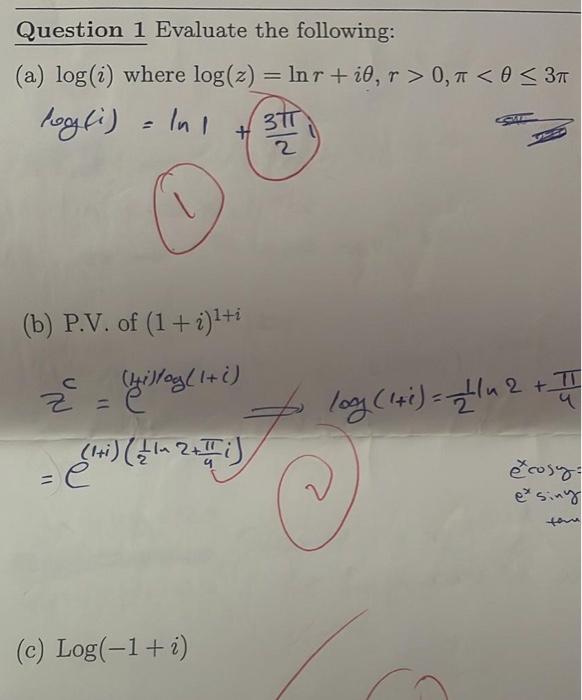 Question 1 Evaluate the following:
(a) log(i) where log(z) = ln r + iθ, r > 0, π < θ ≤ 3π
log(i) = ln 1 + 3π/2 i
1
(b) P.V. of (1 + i)^{1+i}
z^c = e^{(1+i)log(1+i)} ⟹ log(1+i) = 1/2 ln 2 + π/4
= e^{(1+i)(1/2 ln 2 + π/4 i)}
2
e^x cosy =
e^x siny
tan
(c) Log(−1 + i)